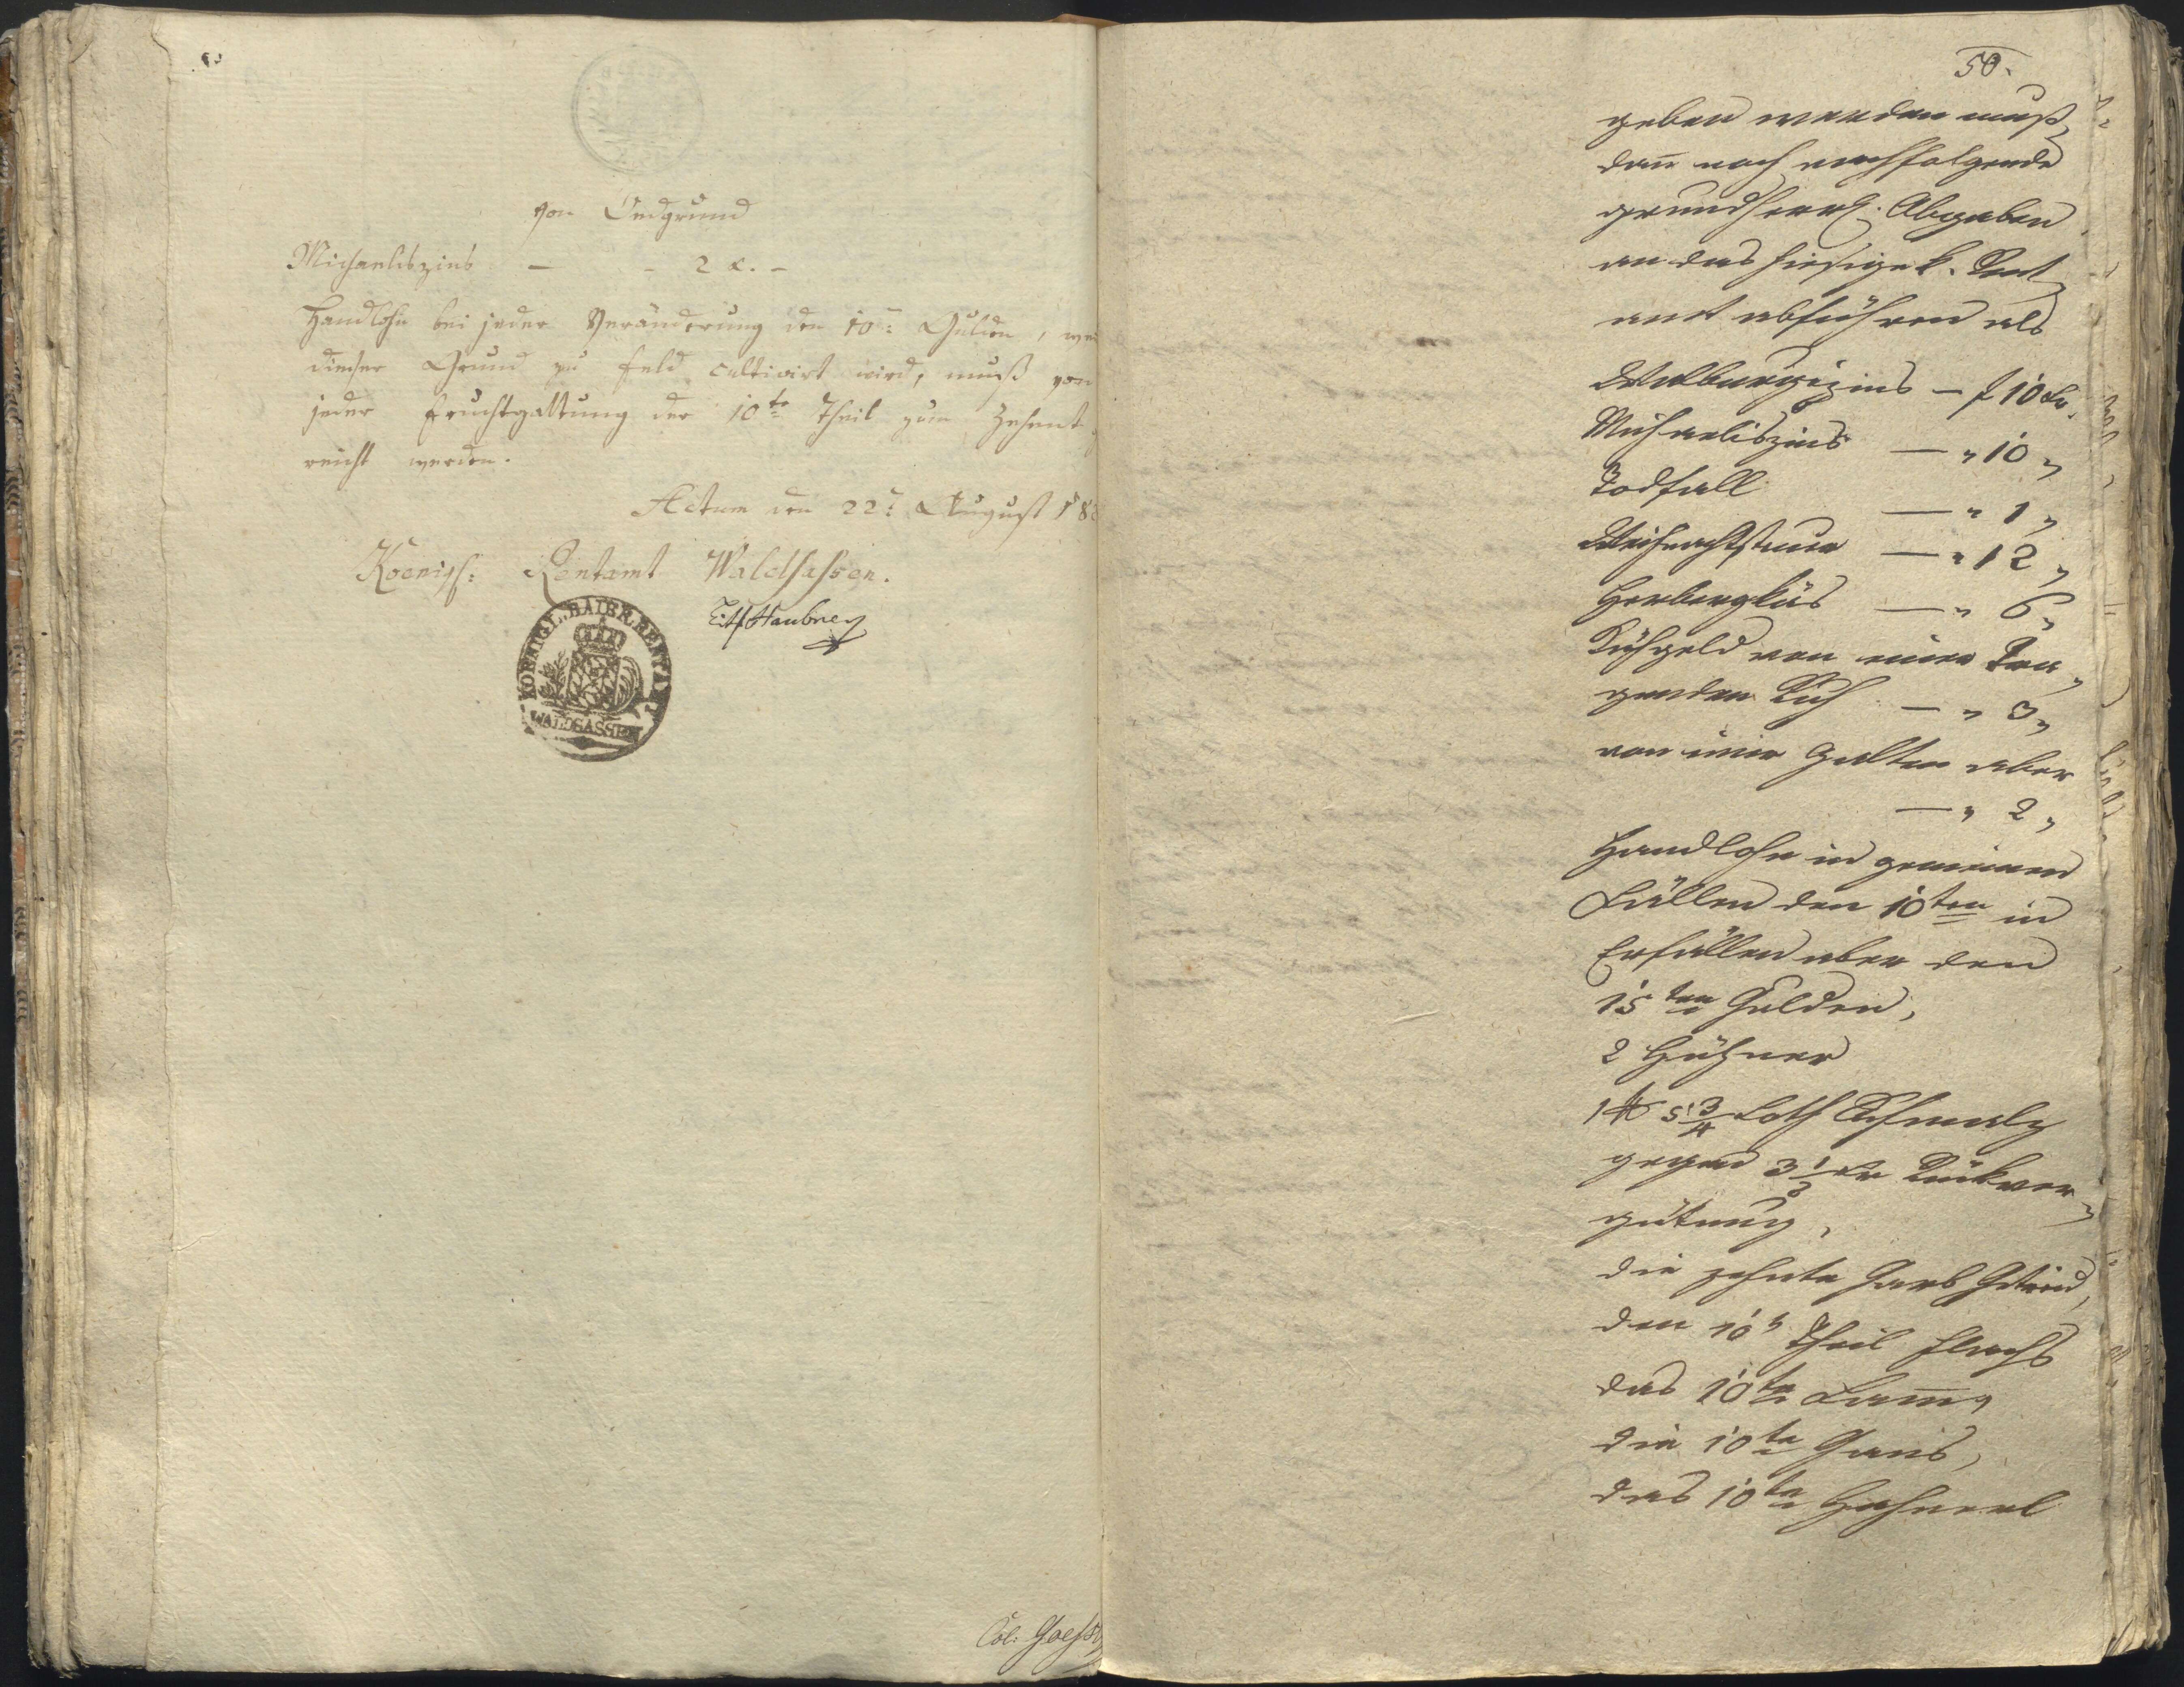 von Oedgrund
Michaeliszins — - 2 x. -
Handlohn bei jeder Veränderung den 10: Gulden, we
dieser Grund zu Feld cultivirt wird, muß von
jeder Fruchtgattung der 10te Theil zum Zehent
reicht werden.
Actum den 22: August 18
Koenigl: Rentamt Waldsassen.
KOENIGL. BAIER. RENTAMT
WALDSASSEN
Col:
50.
geben werden muß,
dan̄ noch nachfolgende
grundherrl. Abgaben
an das hiesige k. Rent
amt abführen als
Walburgizins — f 10 kr.
Michaeliszins — " 10 "
Todfall — " 1 "
Weihnachtsteuer — " 12 "
Herbergkäs — " 6 "
Kuhgeld von einer Tra
genden Kuh — " 3 "
von einer Galten aber
— " 2 "
Handlohn in gemeinen
Fällen den 10ten in
Erbfällen aber den
15ten Gulden,
2 Hühner
1 ℔ 5 3/4 Loth Schmalz
gegen 3 1/2 kr Rückver
gütung,
die zehnte Garb Getreid,
den 10t Theil Flachs
das 10te Lam̄,
die 10te Gans,
das 10te Hahnerl